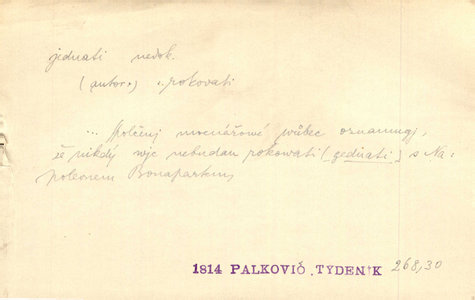 jednati nedok.
(autor.) : rokovati
... Spolčenj mocnářowé wůbec oznamugj,
že nikdý wjc nebudau rokowati (gednati) s Na:
poleonem Bonapartem,
1814 PALKOVIČ, TYDENÍK 268,30